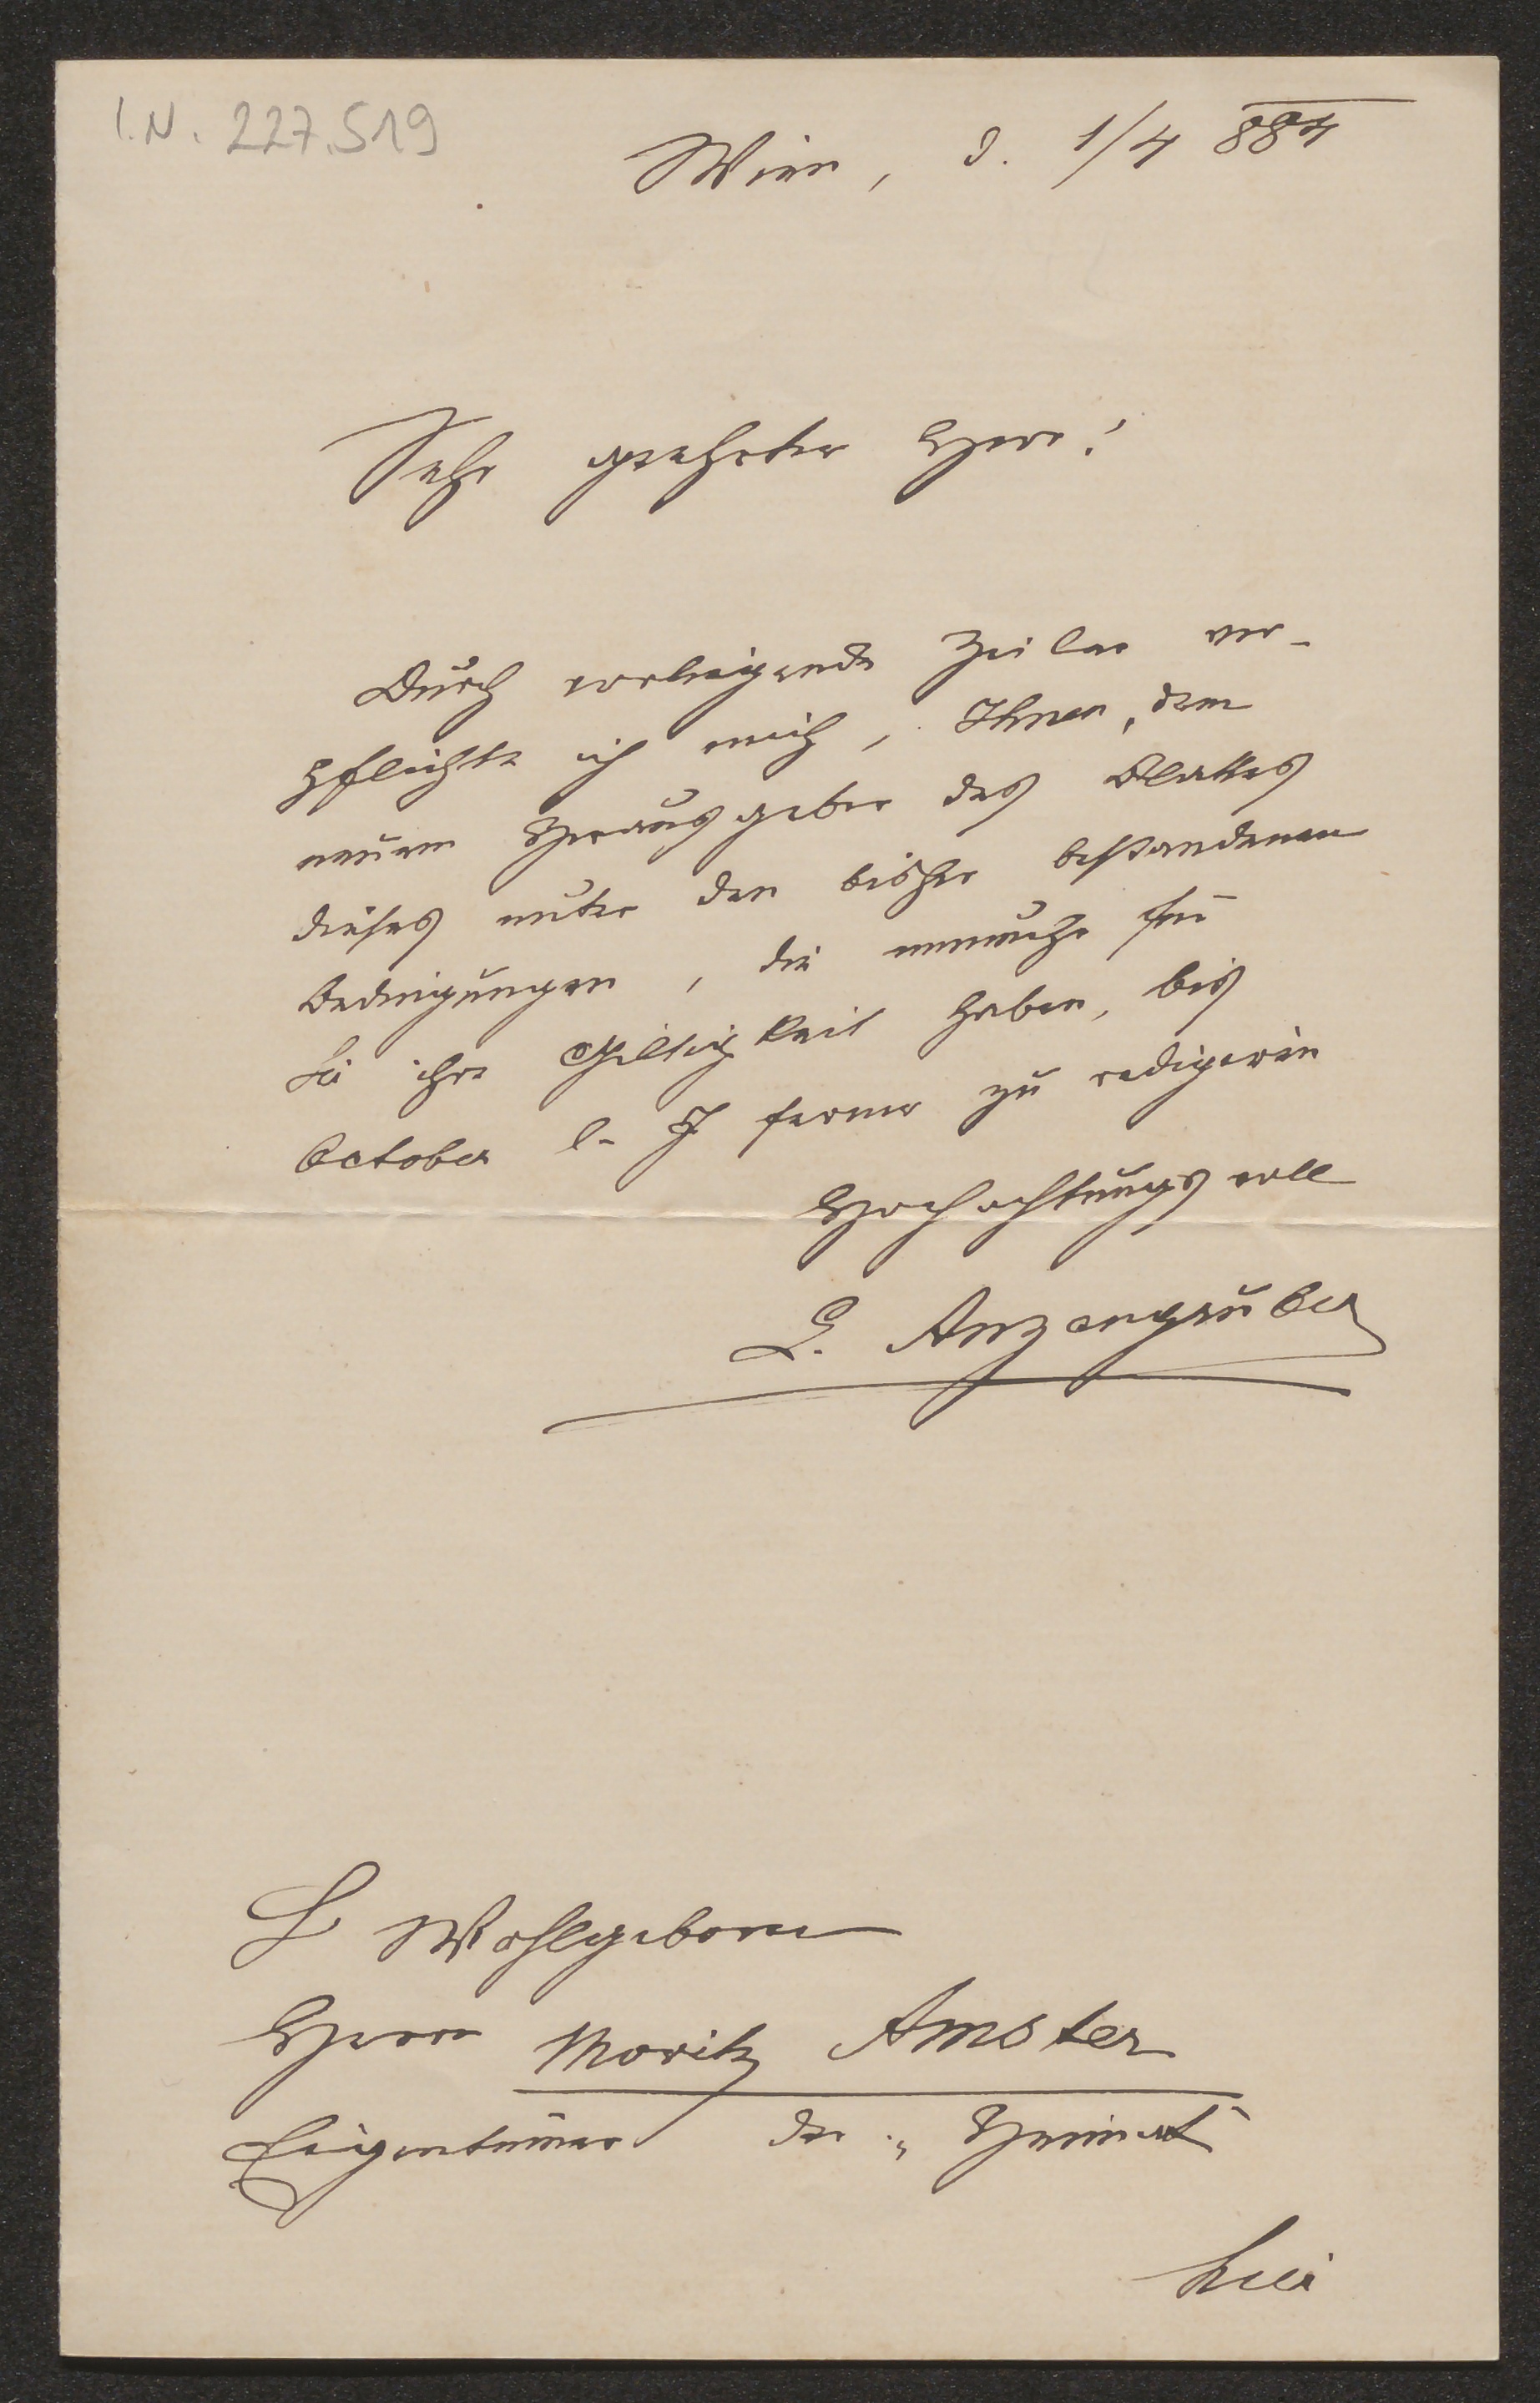 I.N. 227.519
Wien, d. 1/4 884
Sehr geehrter Herr!
Durch vorliegende Zeilen ver-
pflichte ich mich, Ihnen, dem
neuen Herausgeber des Blattes
dieses unter den bisher bestandenen
Bedingungen, die nunmehr für
Sie ihre Giltigkeit haben, bis
October l. J ferner zu redigieren
Hochachtungsvoll
L. Anzengruber
S Wohlgeboren
Herrn Moritz Amster
Eigentümer der „Heimat"
hier